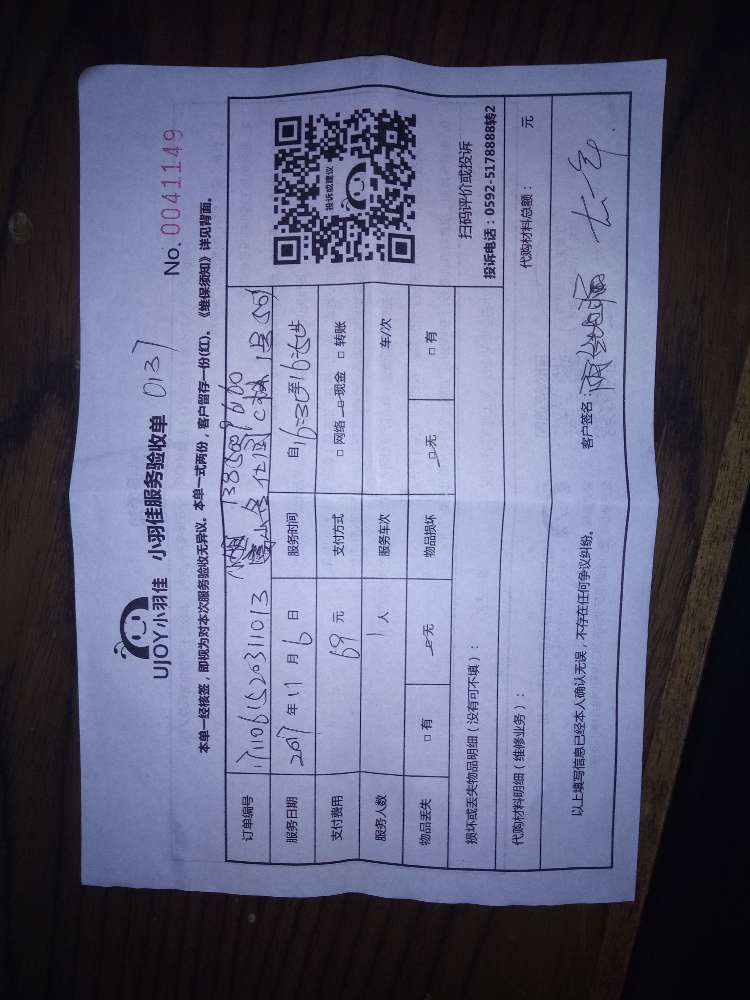 UJOY小羽佳 小羽佳服务验收单 0137 No. 0041149
本单一经核签，即视为对本次服务验收无异议。本单一式两份，客户留存一份(红)。《维保须知》详见背面。
订单编号 1711061520311013
服务日期 2017 年 11 月 6 日 服务时间 自
支付费用 69 元 支付方式 □ 网络 □ 现金 □ 转账
服务人数 1 人 服务车次 车/次
物品丢失 □ 有 □ 无 物品损坏 □ 无 □ 有
投诉或建议
扫码评价或投诉
投诉电话：0592-5178888转2
损坏或丢失物品明细（没有可不填）：
代购材料明细（维修业务）： 代购材料总额： 元
以上填写信息已经本人确认无误，不存在任何争议纠纷。 客户签名：